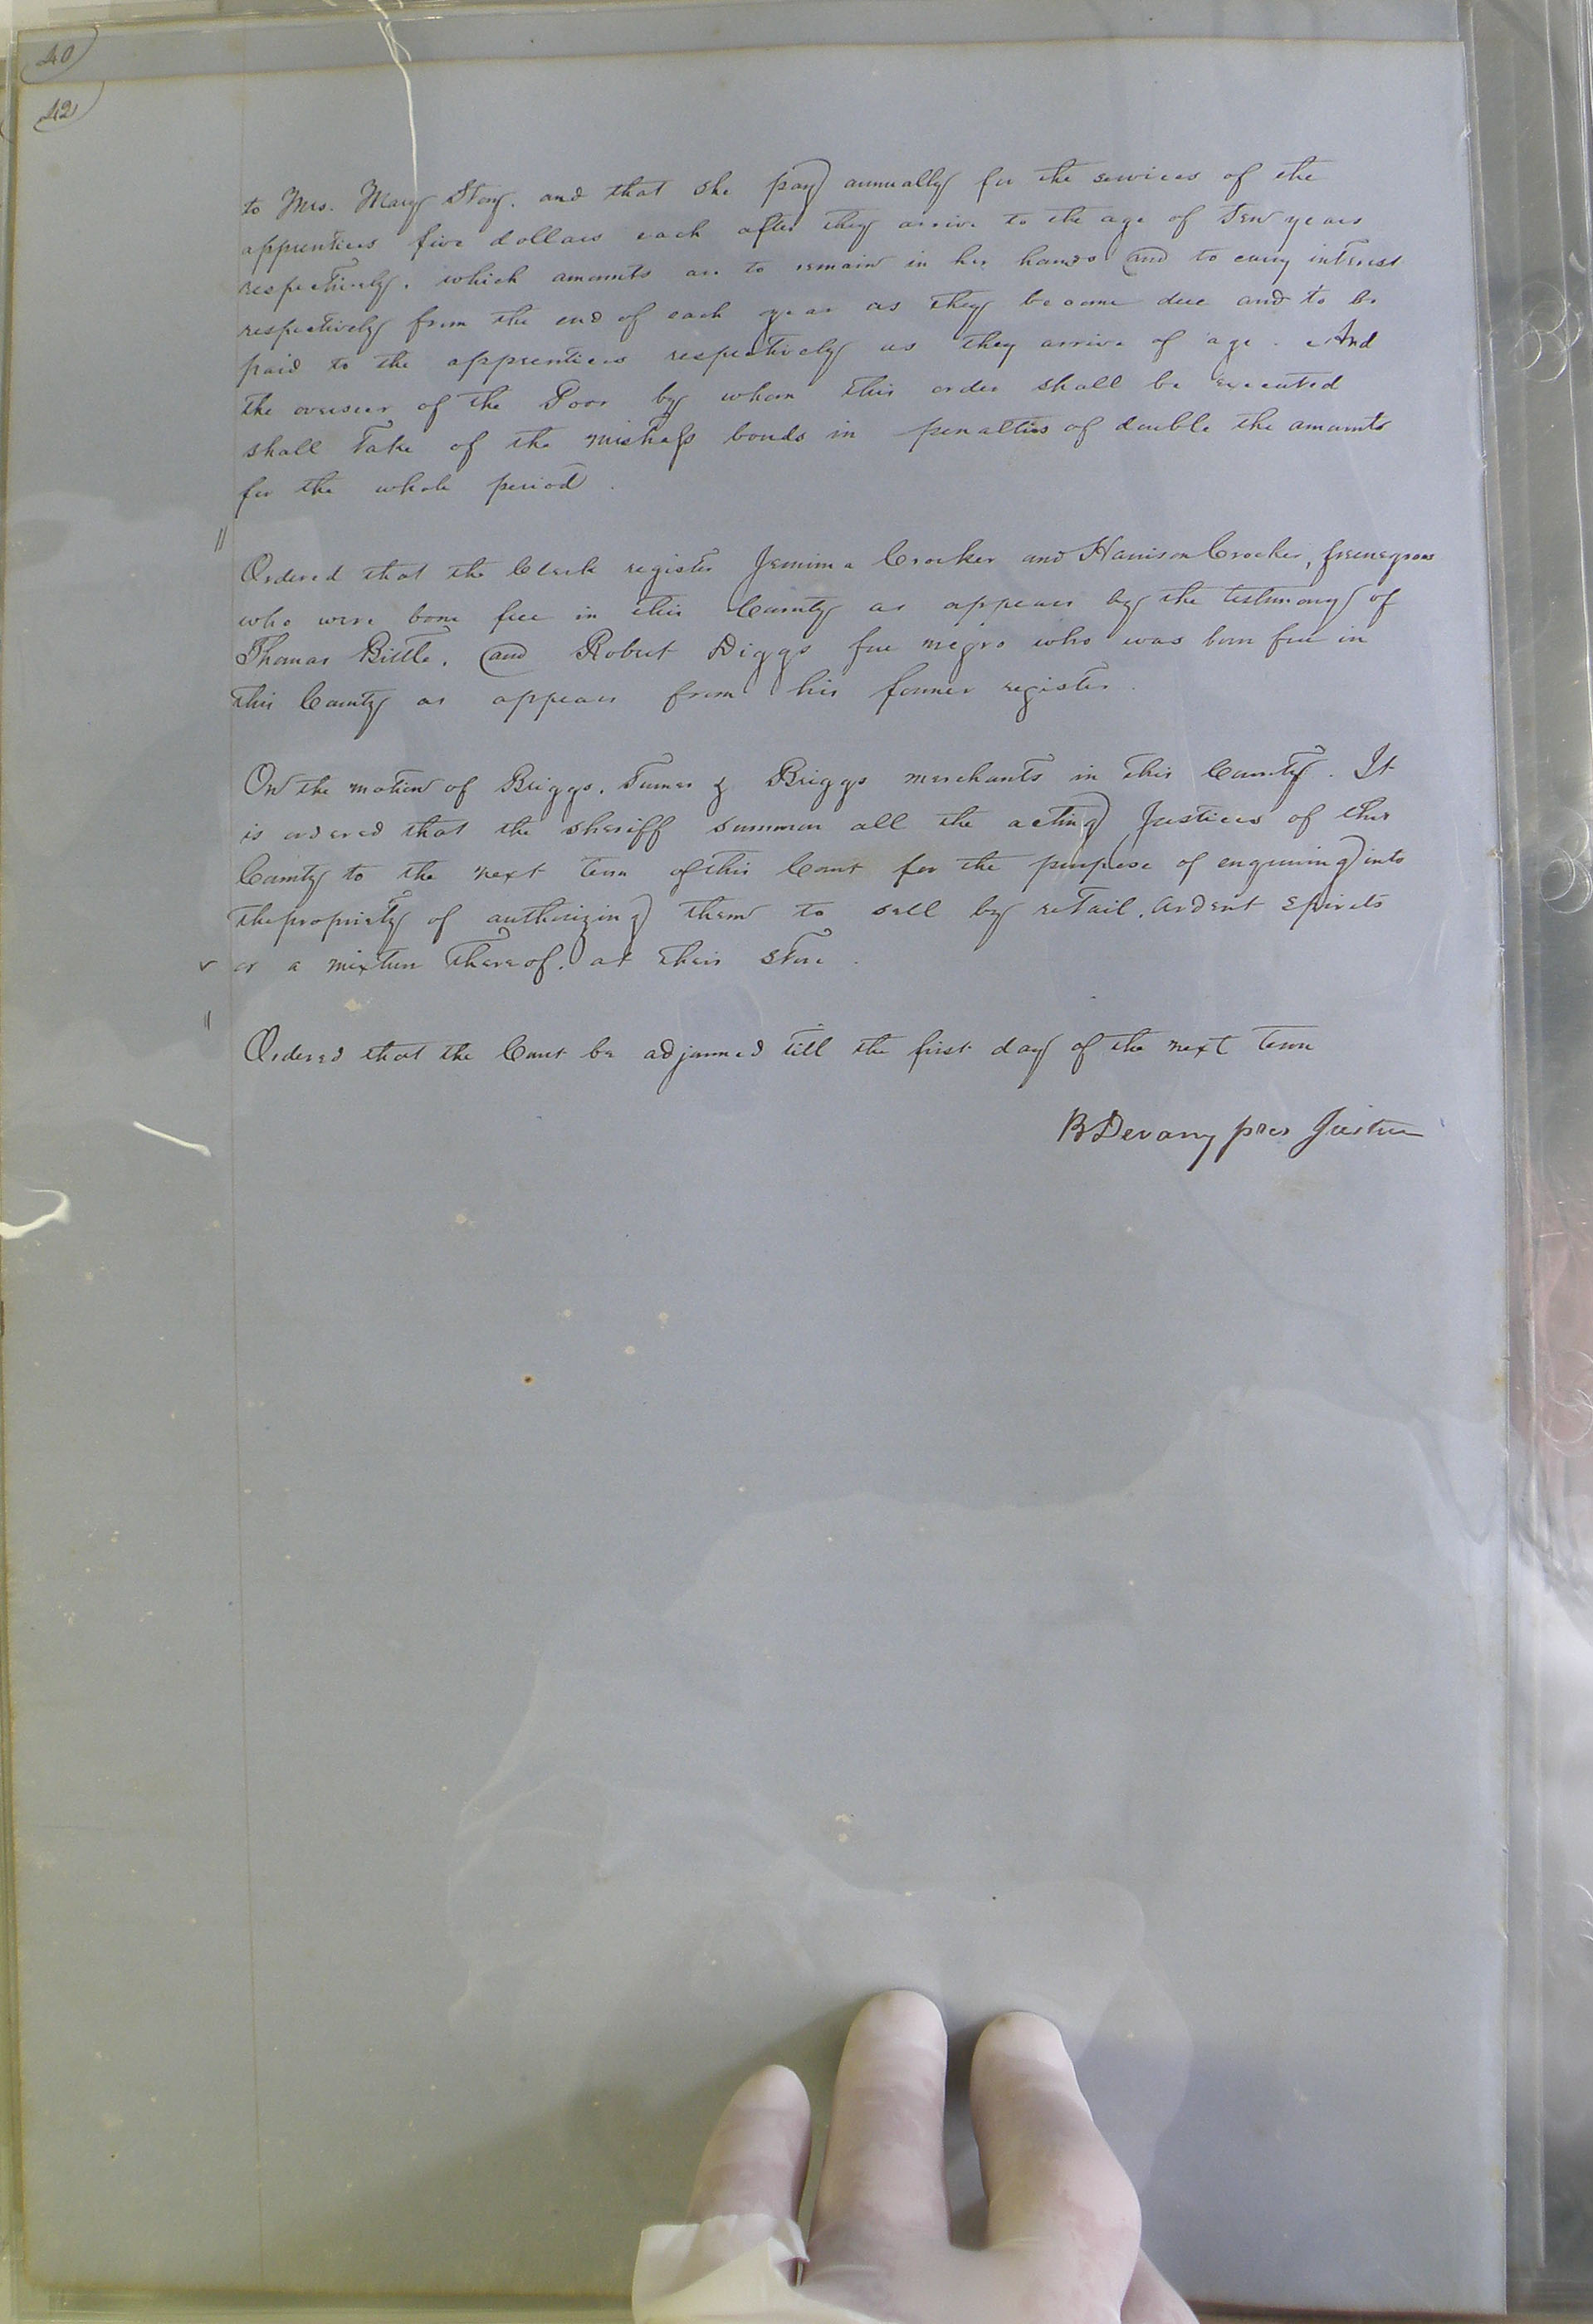 40
42
to Mrs. Mary Story. and that she pay annually for the services of the
apprentices five dollars each after they arrive to the age of Ten years
respectively. which amounts are to remain in her hands and to carry interest
respectively from the end of each year as they become due and to be
paid to the apprentices respectively as they arrive of age. And
the overseer of the Poor by whom this order shall be executed
shall Take of the mistress bonds in penalties of double the amounts
for the whole period.
Ordered that the Clerk register Jemima Crocker and Harrison Crocker, free negroes
who were born free in this County as appears by the testimony of
Thomas Bittle. and Robert Diggs free negro who was born free in
this County as appears from his former register.
On the motion of Briggs, Turner & Briggs merchants in this County. It
is ordered that the sheriff summon all the acting Justices of this
County to the next term of this Court for the purpose of enquiring into
the propriety of authorizing them to sell by retail, ardent spirits
or a mixture thereof. at their store.
Ordered that the Court be adjourned till the first day of the next term
B Devany pres Justice